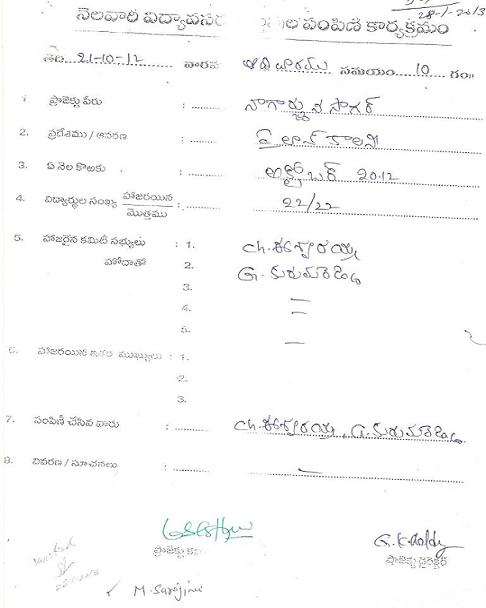 28-1-2013
నెలవారి విద్యావసర ల పంపిణి కార్యక్రమం
తేది 21-10-12 వారము ఆదివారము సమయం 10 గం॥
1 ప్రాజెక్టు పేరు : నాగార్జున సాగర్
2. ప్రదేశము / ఆవరణ : పైలాన్ కాలని
3. ఏ నెల కొఱకు : అక్టోబర్ 2012
4. విద్యార్థుల సంఖ్య హాజరయిన / మొత్తము : 22/22
5. హాజరైన కమిటీ సభ్యులు : 1. Ch. ఈశ్వరయ్య
హోదాతో 2. G. కురుమారెడ్డి
3. —
4. —
5. —
6. హాజరయిన ఇతర ముఖ్యులు : 1.
2.
3.
7. పంపిణీ చేసిన వారు : Ch. ఈశ్వరయ్య, G. కురుమారెడ్డి
8. వివరణ / సూచనలు : —
ప్రాజెక్టు కమి
G. K. Reddy
ప్రాజెక్టు డైరెక్టర్
Verified
✓ M. Sarojini